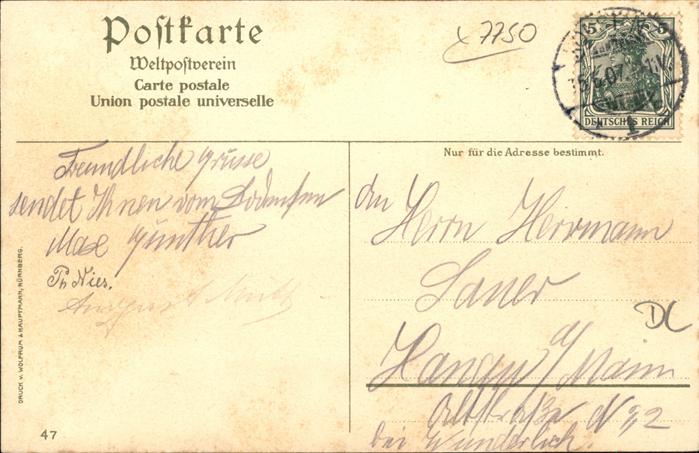 Postkarte
Weltpostverein
Carte postale
Union postale universelle
x 7750
5 5
DEUTSCHES REICH
15.6.07
1
Nur für die Adresse bestimmt.
Freundliche Grüsse
sendet Ihnen vom Bodensee
Max Günther
Ph Nies.
An
Herrn Herrmann
Sauer
Hanau a/Main
Altstraße No 22
bei Wunderlich.
DC
DRUCK v. WOLFRUM & HAUPTMANN, NÜRNBERG.
47